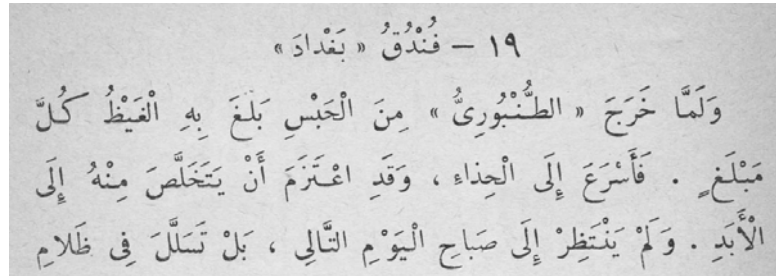 ١٩ – فُنْدُقُ « بَغْدادَ »
وَلَمَّا خَرَجَ « الطُّنْبُورِىُّ » مِنَ الْحَبْسِ بَلَغَ بِهِ الْغَيْظُ كُلَّ
مَبْلَغٍ . فَأَسْرَعَ إِلَى الْحِذاءِ ، وَقَدِ اعْتَزَمَ أَنْ يَتَخَلَّصَ مِنْهُ إِلَى
الْأَبَدِ . وَلَمْ يَنْتَظِرْ إِلَى صَباحِ الْيَوْمِ التَّالِى ، بَلْ تَسَلَّلَ فِى ظَلامِ